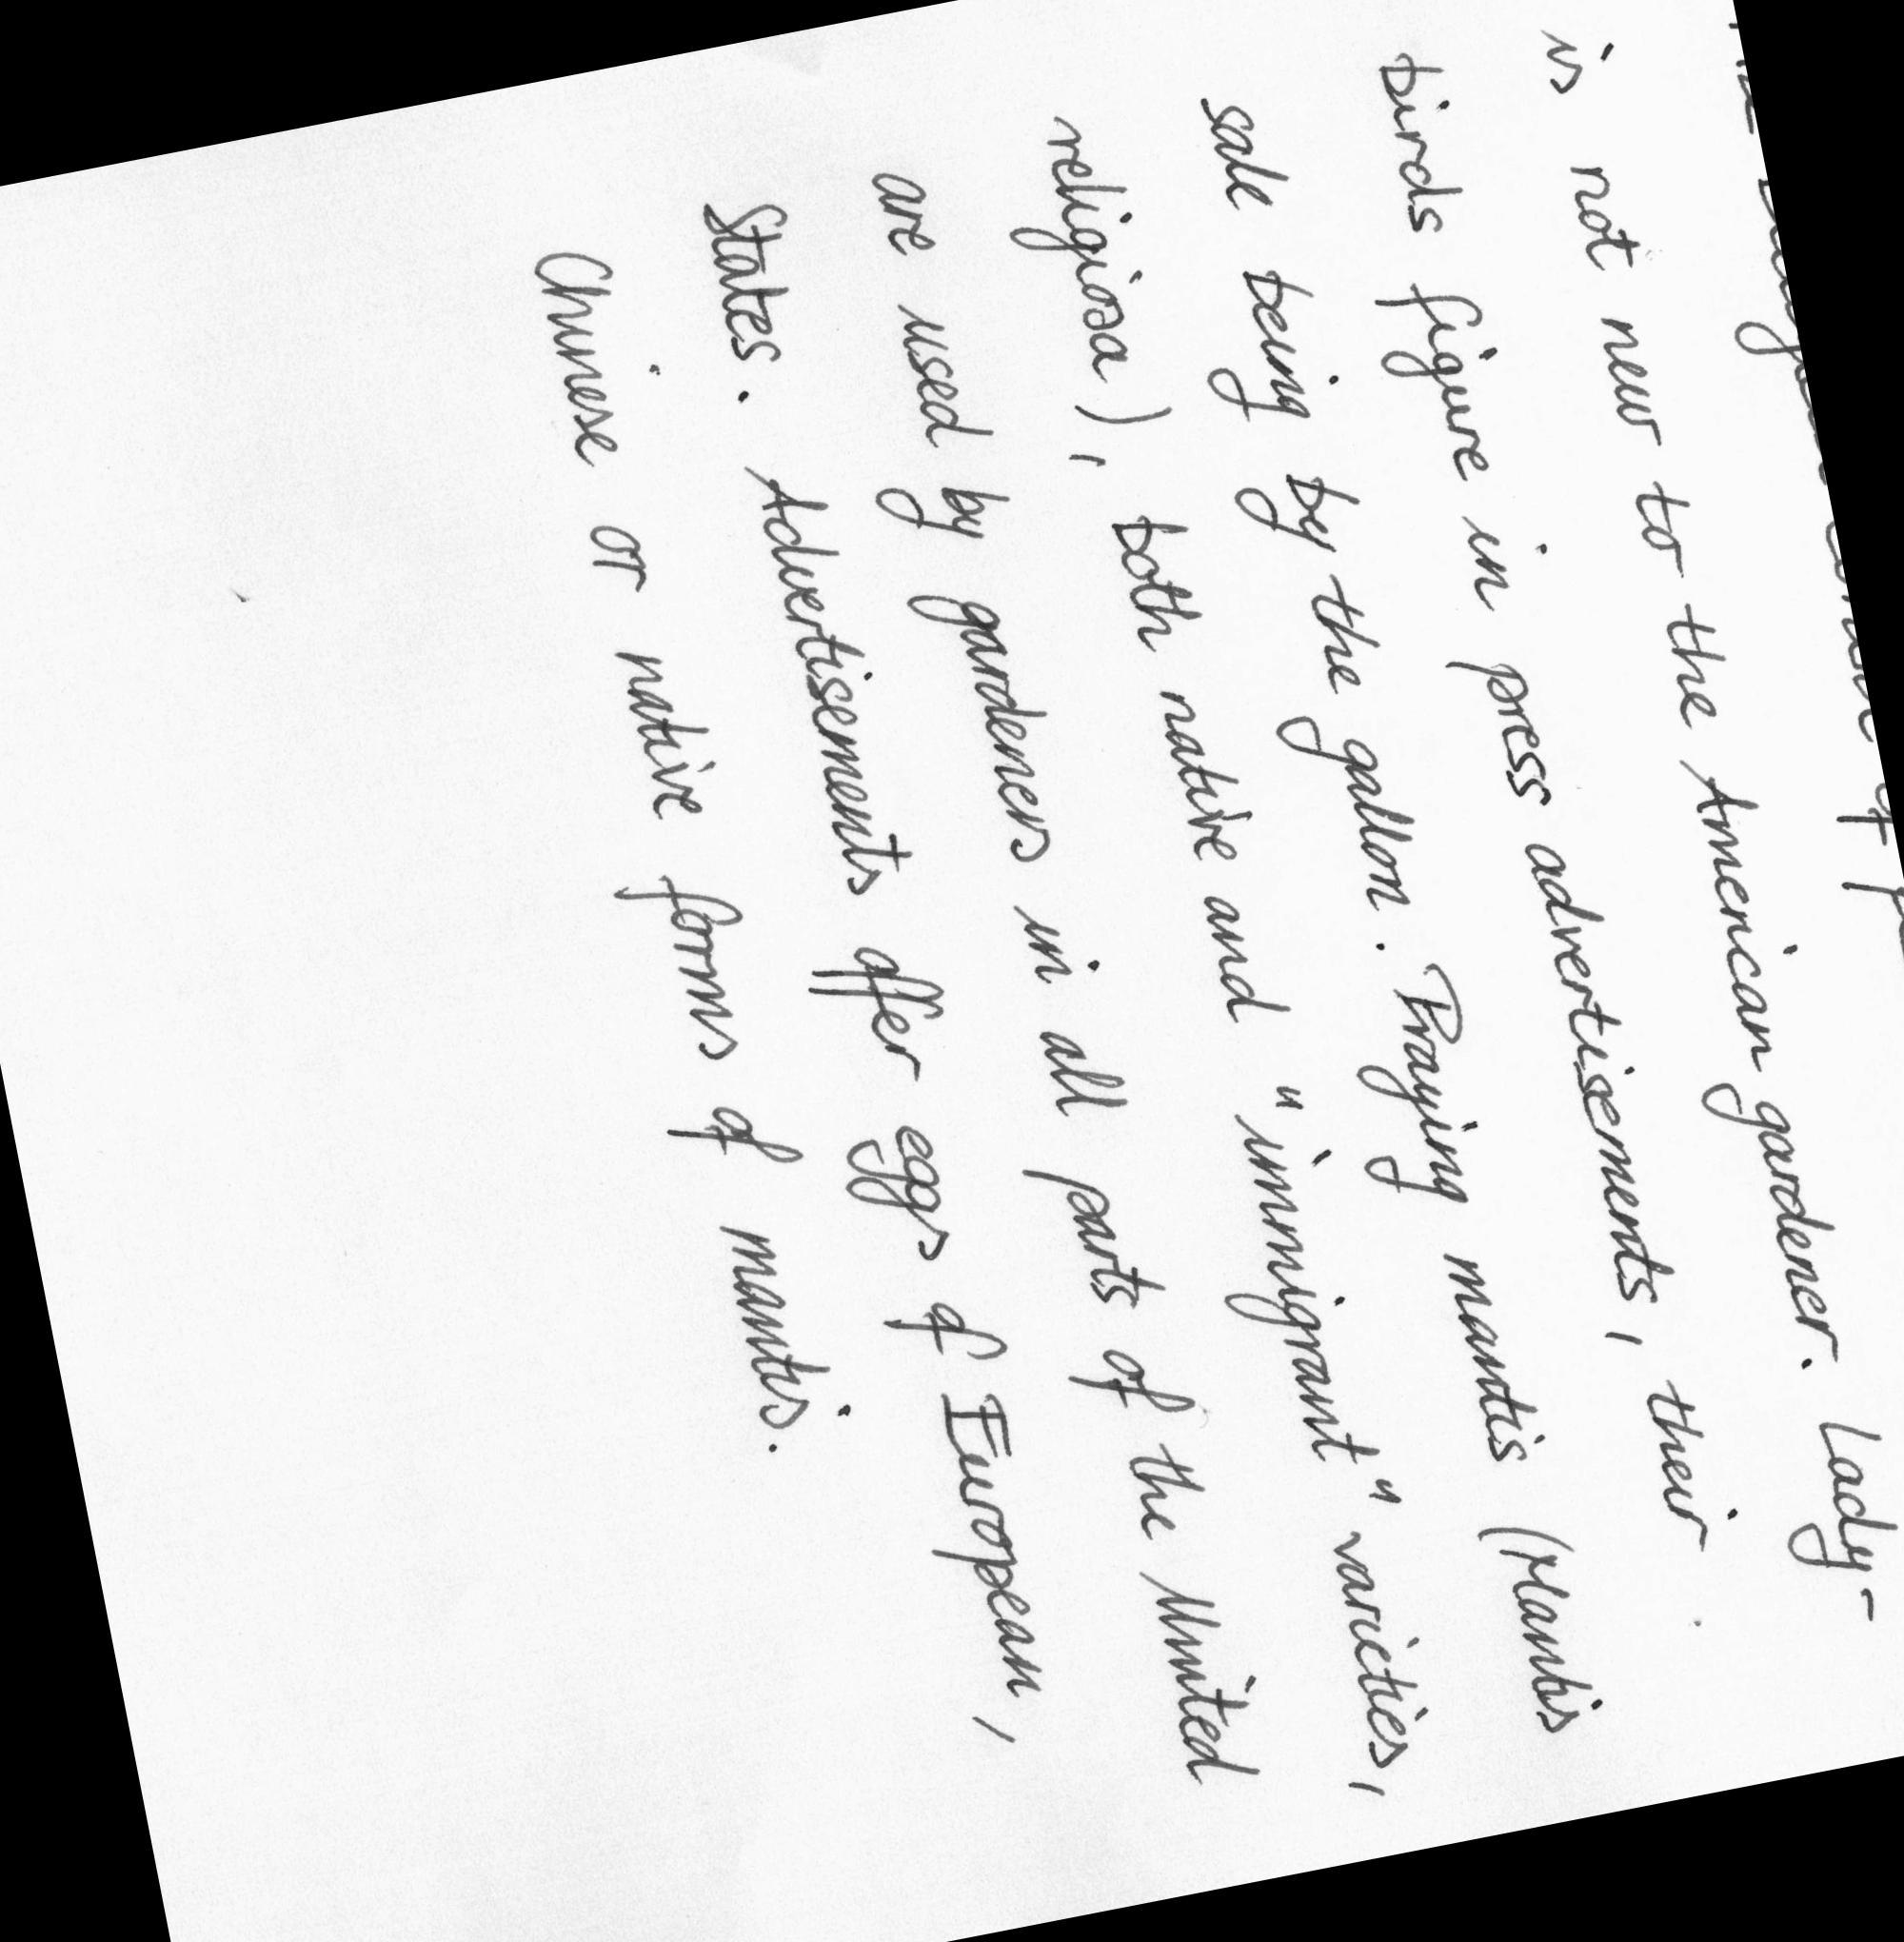 is not new to the American gardener. Lady-
birds figure in press advertisements, their
sale being by the gallon. Praying mantis (Mantis
religiosa), both native and "immigrant" varieties,
are used by gardeners in all parts of the United
States. Advertisements offer eggs of European,
Chinese or native forms of mantis.